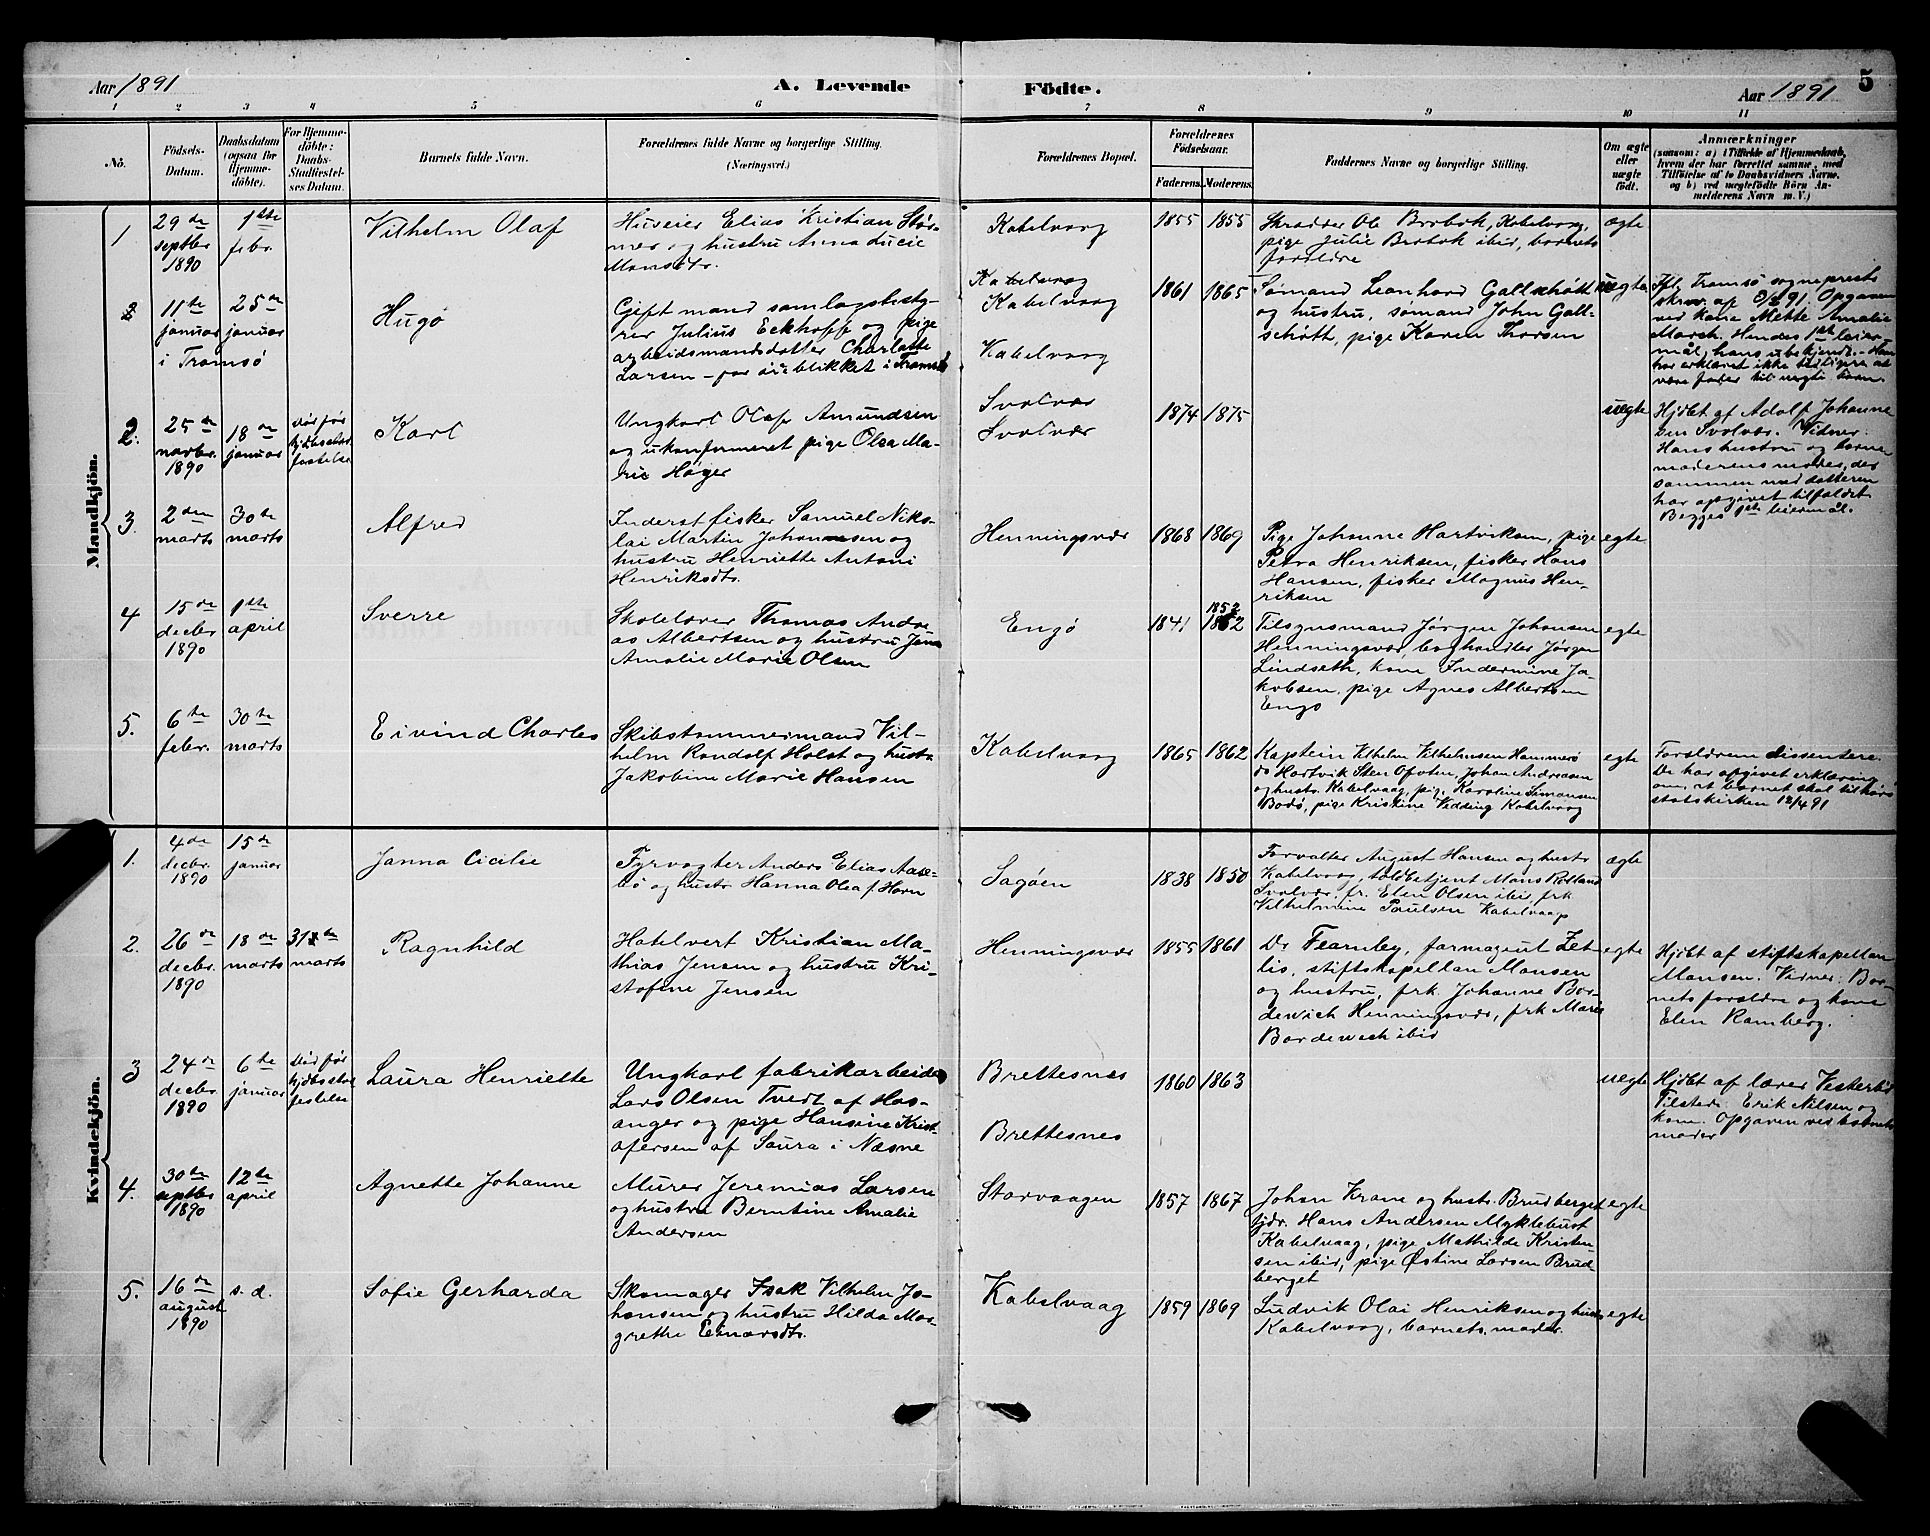 Aar 1891
A. Levende
Födte.
Aar 1891
5
1 2 3 4 5 6 7 8 9 10 11
No.
Födsels-
Datum.
Daabsdatum
(ogsaa for
Hjemme-
döbte).
For Hjemme-
döbte:
Daabs-
Stadfæstel-
ses Datum.
Barnets fulde Navn.
Forældrenes fulde Navne og borgerlige Stilling.
(Næringsvei.)
Forældrenes Bopæl.
Forældrenes
Födselsaar.
Faderens. Moderens.
Faddernes Navne og borgerlige Stilling.
Om ægte
eller
uægte
födt.
Anmærkninger
(saasom: a) i Tilfælde af Hjemmedaab,
hvem der har forrettet samme, med
Tilföielse af to Daabsvidners Navne,
og b) ved uægtefödte Börn An-
melderens Navn m. V.)
Mandkjön.
1
29de
septbr
1890
1ste
febr.
Vilhelm Olaf
Huseier Elias Kristian Stør-
mer og hustru Anna Lucie
Monsdtr.
Kabelvaag
1855 1855
Skrædder Ole Brobok, Kabelvaag,
pige Julie Brobok ibid, barnets
forældre
ægte
2
11te
januar
i Tromsö
25de
januar
Hugo
Gift mand samlagsbesty-
rer Julius Eckhoff og pige
arbeidsmandsdatter Charlotte
Larsen - for öieblikket i Tromsö
Kabelvaag
Kabelvaag
Kabelvaag
1861 1865
Sømand Leonhard Gallschøtt
og hustru, sømand John Gall-
schøtt, pige Karen Thorsen
uegte
Ifl. Tromsö sogneprests
skriv. af 2/2 91. Opgaven
ved kone Mette Amalie
March. Hendes 1ste leier-
mål, hans ubekjendt. - Han
har erklæret ikke tidligere at
være fader til uegte barn.
2.
25de
novbr.
1890
18de
januar
Død før
hjdbs stad-
festelse
Karl
Ungkarl Olaf Amundsen
og ukonfirmeret pige Olea Ma-
rie Høyer
Svolvær
Svolvær
1874 1875
uegte
Hjdbt af Adolf Johanne
sen Svolvær. Vidner:
Hans hustru og barne
moderens moder, der
sammen med datteren
har opgivet tilfældet.
Begges 1ste leiermål.
3.
2den
marts
30te
marts
Alfred
Inderst fisker Samuel Niko-
lai Martin Johannesen og
hustru Henriette Antoni
Henriksdtr.
Henningsvær
1868 1869
Pige Johanne Hartviksen, pige
Petra Henriksen, fisker Hans
Hansen, fisker Magnus Hen-
riksen
egte
4
15de
decbr
1890
1ste
april
Sverre
Skolelærer Thomas Andre
as Albertsen og hustru Jens
Amalie Marie Olsen
Engö
1841
1852
1852
Tilsynsmand Jørgen Johansen
Henningsvær, boghandler Jørgen
Lindseth, kone Indermine Ja-
kobsen, pige Agnes Albertsen
Engö
egte
5.
6te
febr.
30te
marts
Eivind Charles
Skibstømmermand Vil-
helm Randolf Holst og hustru
Jakobine Marie Hansen
Kabelvaag
1865 1862
Kaptein Vilhelm Vilhelmsen Hammerö
do Hartvik Sten Ofoten, Johan Andreasen
og hustr. Kabelvaag, pig. Karoline Simonsen
Bodö, pige Kristine Vidding Kabelvaag
egte
Forældrene dissentere.
De har opgivet erklæring
om, at barnet skal tilhöre
statskirken 12/4 91
Kvindekjön.
1.
4de
decbr.
1890
15de
januar
Janna Cicilie
Fyrvogter Anders Elias Aase-
bö og hustr. Hanna Olea f. Horn
Sagöen
1838 1850
Forvalter August Hansen og hustr
Kabelvaag, toldbetjent Mons Rolland
Svolvær, fr. Elen Olsen ibid, frk
Vilhelmine Paulsen Kabelvaag
ægte
2.
26de
decbr.
1890
18de
marts
31te
marts
Ragnhild
Hotelvert Kristian Ma-
thias Jensen og hustru Kri-
stofine Jensen
Henningsvær
1855 1861
Dr Fearnley, farmaceut Zet-
lis, stiftskapellan Monsen
og hustru, frk. Johanne Bor-
dewich Henningsvær, frk Marie
Bordewich ibid
egte
Hjdbt af stiftskapellan
Monsen. Vidner: Bar-
nets forældre og kone
Elen Ramberg.
3
24de
decbr
1890
6te
januar
Død før
hjdbs stad
festelse
Laura Henriette
Ungkarl fabrikarbeider
Lars Olsen Tvedt af Hos-
anger og pige Hansine Krist-
ofersen af Saura i Næsne
Brettesnes
Brettesnes
1860 1863
uegte
Hjdbt af lærer Vesterbö
Tilstede: Erik Nilsen og
kone. Opgaven ved barnets
moder
4.
30te
septbr
1890
12te
april
Agnette Johanne
Murer Jeremias Larsen
og hustru Berntine Amalie
Andersen
Storvaagen
1857 1867
Johan Krane og hustr. Brudberget
fjdr. Hans Andersen Myklebust
Kabelvaag, pige Mathilde Kristen-
sen ibid, pige Østine Larsen Brud
berget
egte
5.
16de
august
1890
s. d.
Sofie Gerharda
Skomager Isak Vilhelm Jo-
hansen og hustru Hilda Mar-
grethe Einarsdtr.
Kabelvaag
1859 1869
Ludvik Olai Henriksen og hustr
Kabelvaag, barnets moder.
egte